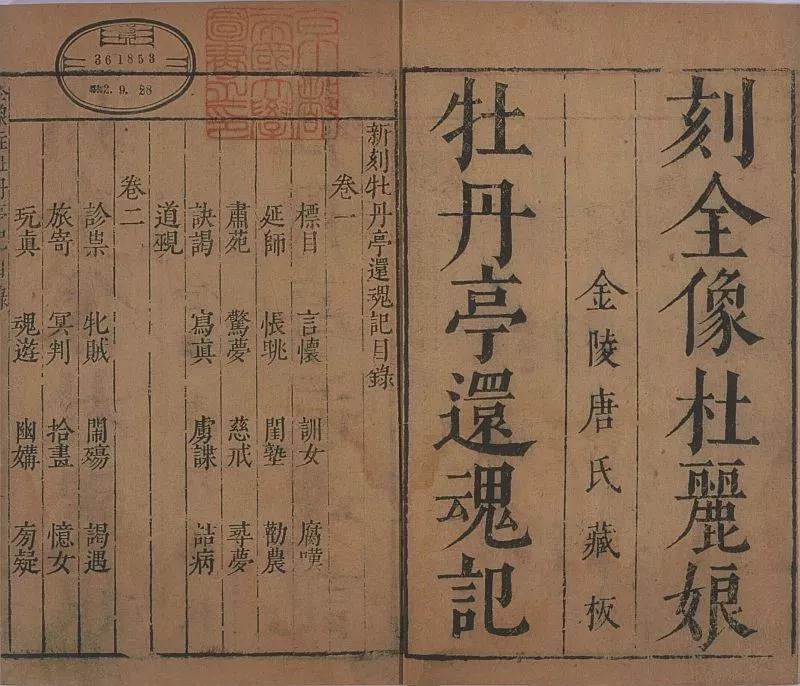 刻全像杜麗娘
金陵唐氏藏板
牡丹亭還魂記
新刻牡丹亭還魂記目錄
卷一
標目 言懷 訓女 腐嘆
延師 悵眺 閨塾 勸農
肅苑 驚夢 慈戒 尋夢
訣謁 寫真 虜諜 詰病
道覡
卷二
診祟 牝賊 鬧殤 謁遇
旅寄 冥判 拾畫 憶女
玩真 魂遊 幽媾 旁疑
361853
2.9.28